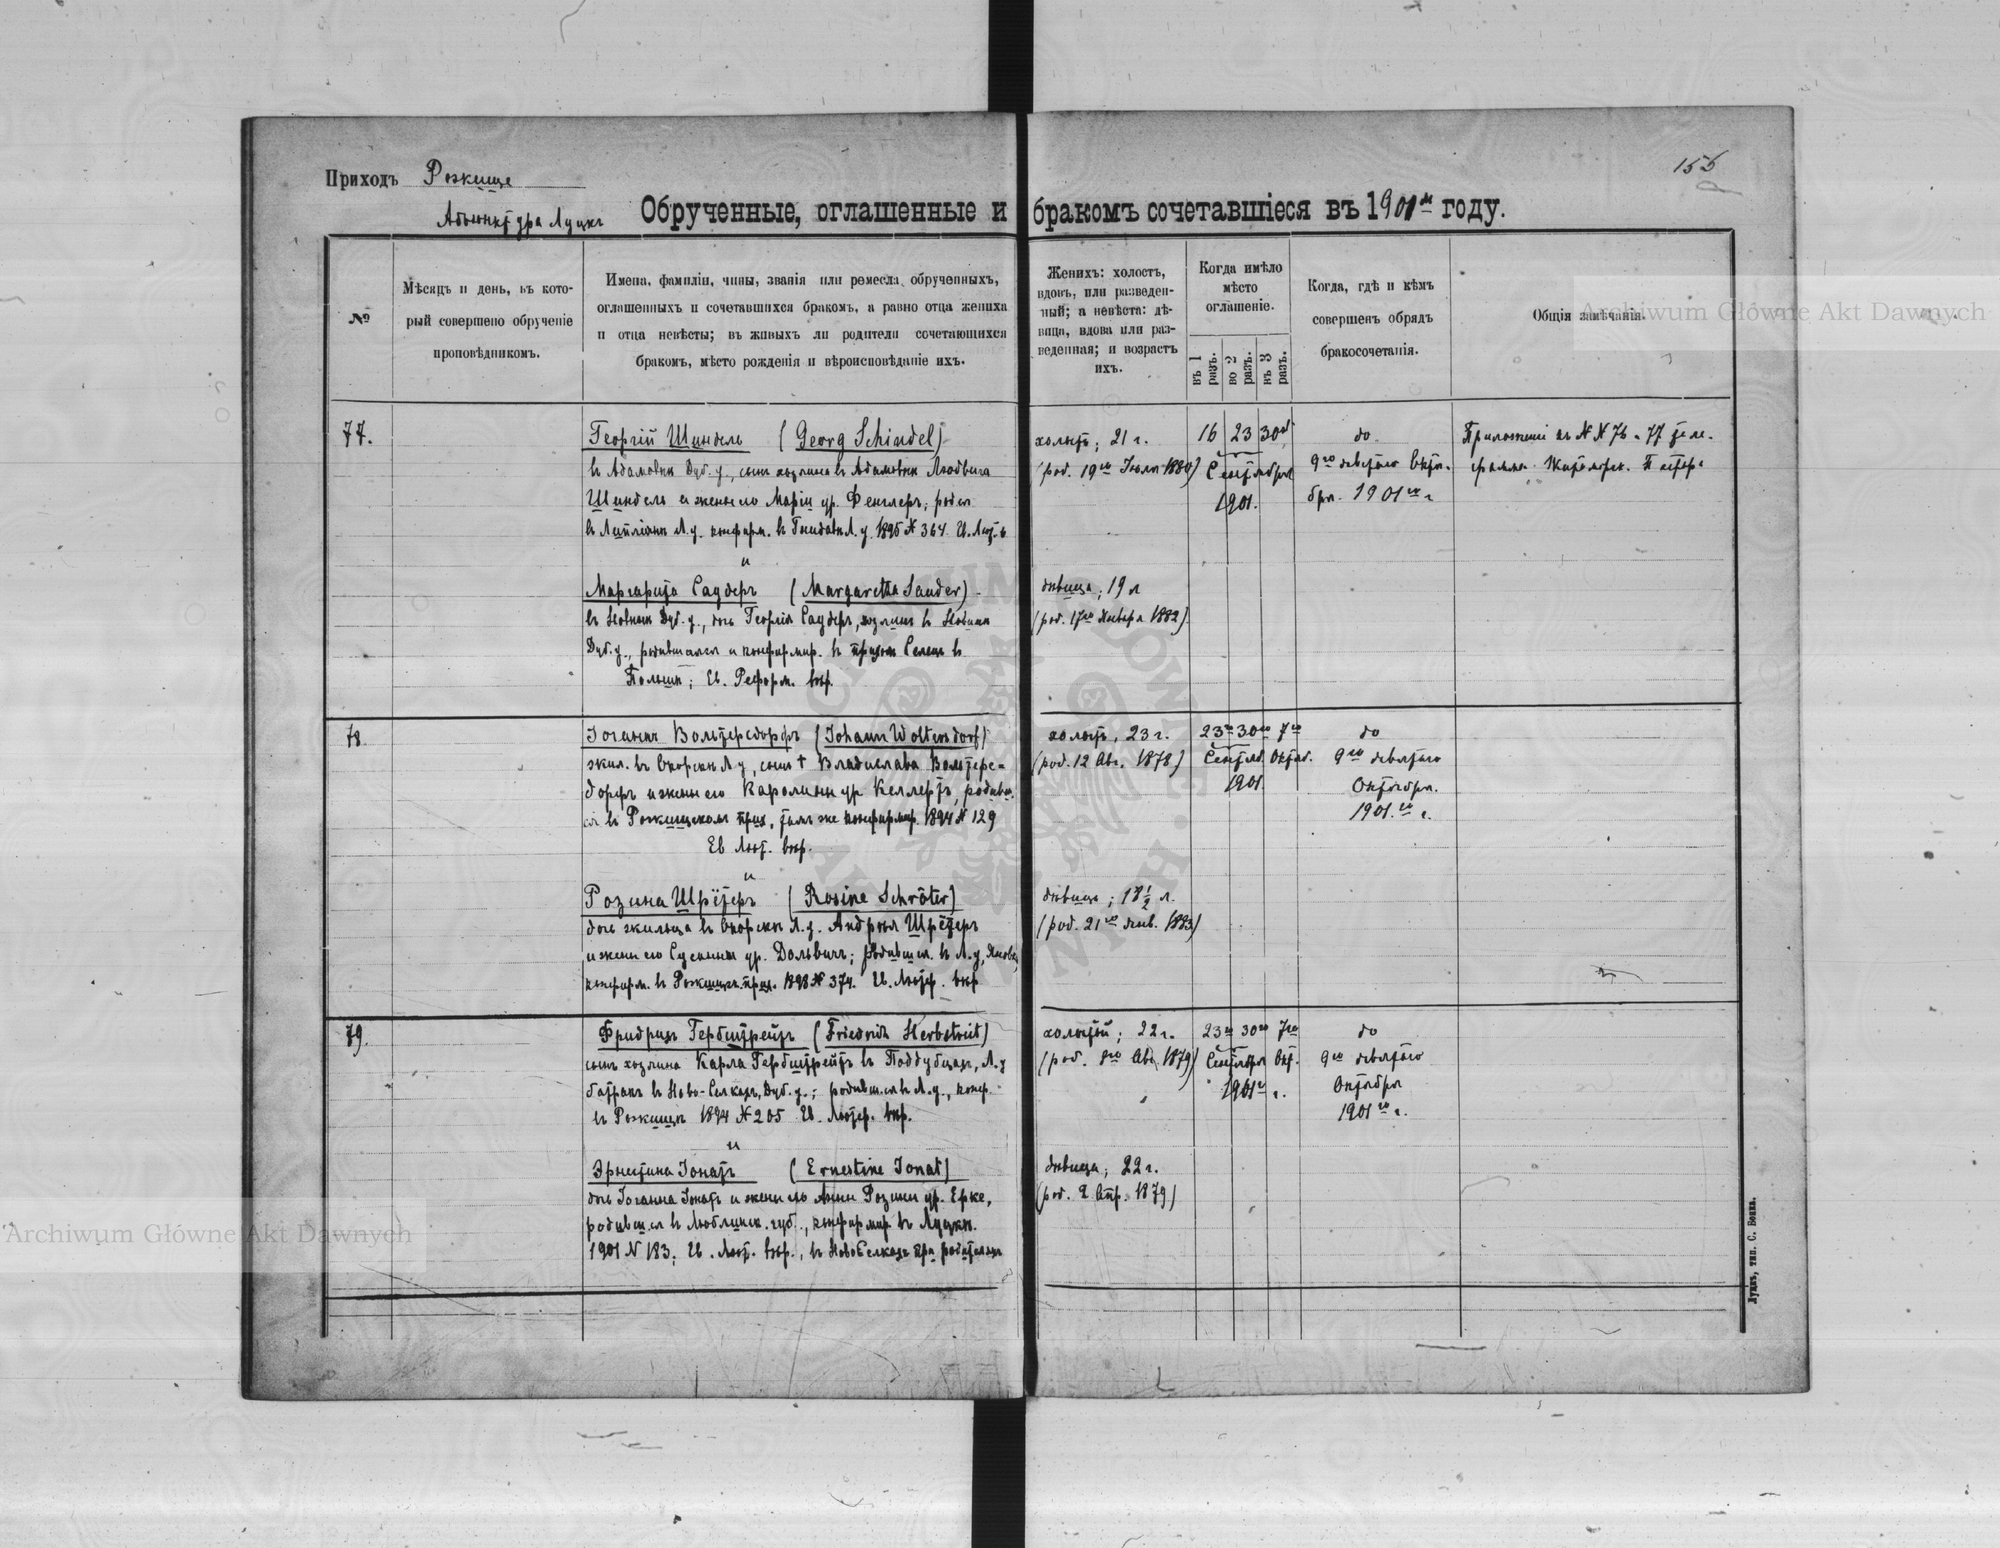 155
Приходъ Рожище
Адъюнктура Луцкъ
Обрученные, оглашенные и бракомъ сочетавшіеся въ 1901 м году.
№
Мѣсяцъ и день, въ кото-
рый совершено обрученіе
проповѣдникомъ.
Имена, фамиліи, чины, званія или ремесла обрученныхъ,
оглашенныхъ и сочетавшихся бракомъ, а равно отца жениха
и отца невѣсты; въ живыхъ ли родители сочетающихся
бракомъ, мѣсто рожденія и вѣроисповѣданіе ихъ.
Женихъ: холостъ,
вдовъ, или разведен-
ный; а невѣста: дѣ-
вица, вдова или раз-
веденная; и возрастъ
ихъ.
Когда имѣло
мѣсто
оглашеніе.
въ 1 разъ.
во 2 разъ.
въ 3 разъ.
Когда, гдѣ и кѣмъ
совершенъ обрядъ
бракосочетанія.
Общія замѣчанія.
77.
Георгій Шиндель (Georg Schindel)
въ Адамовкѣ Дуб. у., сынъ хозяина въ Адамовкѣ Людвига
Шиндель и жены его Маріи ур. Фенглеръ; родил
Л. у. конфирм. въ Л. у. 1895 № 364. Ев. Лют. в.
и
Маргарита Саудеръ (Margaretha Sauder)
въ Новинах Дуб. у., дочь Георгія Саудеръ, хозяина въ
Дуб. у., родившаяся и конфирмир. въ приходѣ въ
Польшѣ; Ев. Реформ. вѣр.
холостъ; 21 г.
(род. 19го Іюля 1880)
дѣвица; 19 л
(род. 17го Января 1882)
16 23 30го
Сентября
1901.
до
9го девятаго Октя-
бря. 1901 го г
Приложеніе къ N N 76 и 77 теле-
грамма. Житомірск. Пастора
78.
Іоганнъ Вольтерсдорфъ (Johann Woltersdorf)
жил. въ Л. у, сынъ † Владислава Вольтерс-
дорфъ и жены его Каролины ур. Келлертъ, родивш.
ся въ Рожищскомъ прих., тамъ же конфирмир. 1894 № 129
Ев Лют. вѣр.
и
Розина Шрётеръ (Rosine Schröter)
дочь жильца въ Л. у. Андрея Шрётеръ
и жены его Сусанны ур. Дольвичъ; родивш. въ Л. у,
конфирм. въ Рожищск. прих. 1898 № 374. Ев. Лютер. вѣр
холостъ, 23 г.
(род. 12 Авг. 1878)
дѣвица; 18 1/2 л.
(род. 21го Янв. 1883)
23го 30го 7го
Сентяб Октяб.
1901.
до
9го девятаго
Октября.
1901. го г.
79.
Фридрихъ Гербштрейтъ (Friedrich Herbstreit)
сынъ хозяина Карла Гербштрейтъ въ Поддубцахъ, Л. у
батракъ въ Ново-Селкахъ, Дуб. у.; родивш. въ Л. у., конф.
въ Рожищѣ 1894 № 205 Ев. Лютер. вѣр.
и
Эрнстина Іонатъ (Ernestine Jonat)
дочь Іоганна Іонатъ и жены его Анны Розины ур. Ерке,
родивш.ся въ Люблинск. губ., конфирмир. въ Луцкѣ.
1901 N 183; Ев. Лют. вѣр., въ Новоселкахъ при родителяхъ
холостой; 22 г.
(род. 8го Авг. 1879)
дѣвица; 22 г.
(род. 2 Апр. 1879)
23го 30го 7го
Сентября Окт.
1901 г.
до
9го девятаго
Октября
1901 го г.
Луцкъ, тип. С. Бонка.
Archiwum Główne Akt Dawnych
Archiwum Główne Akt Dawnych